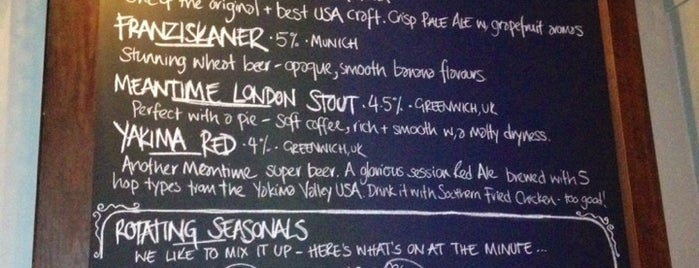 the original + best USA craft. Crisp PALE ALE w, grapefruit aromas
FRANZISKANER · 5% · MUNICH
Stunning wheat beer - opaque, smooth banana flavours
MEANTIME LONDON STOUT · 4.5% · GREENWICH, UK
Perfect with a pie - soft coffee, rich + smooth w, a malty dryness.
YAKIMA RED · 4% · GREENWICH, UK
Another Meantime super beer. A glorious session Red Ale brewed with 5
hop types from the Yakima Valley USA. Drink it with Southern Fried Chicken - too good!
ROTATING SEASONALS
WE LIKE TO MIX IT UP - HERE'S WHAT'S ON AT THE MINUTE...